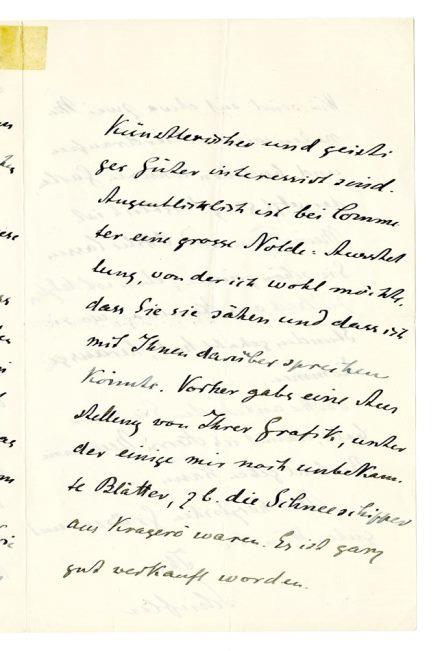 Künstlerischer und geisti
ger Güter interessirt sind.
Augenblicklich ist bei Comme
ter eine grosse Nolde-Ausstel
lung, von der ich wohl möchte,
dass Sie sie sähen und dass ich
mit Ihnen darüber sprechen
könnte. Vorher gabs eine Aus
stellung von Ihrer Grafik, unter
der einige mir noch unbekann
te Blätter, z b. die Schneeschipper
aus Kragerö waren. Es ist ganz
gut verkauft worden.